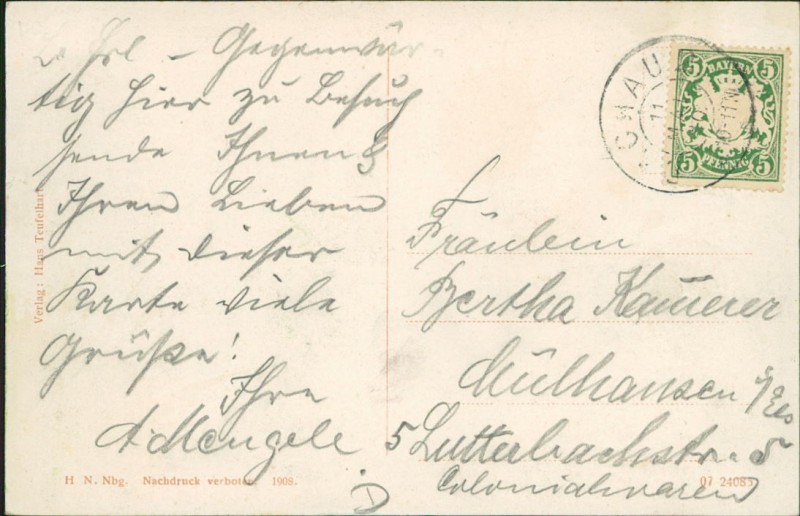 Frl – Gegenwär-
tig hier zu Besuch
sende Ihnen &
Ihren Lieben
mit dieser
Karte viele
Grüße!
Ihre
A Mengele
Verlag: Hans Teufelhart
H N. Nbg. Nachdruck verboten. 1908.
BAYERN
5 5
5 5
PFENNIG
Fräulein
Bertha Kamerer
Mülhausen i/Els
5 Lutterbachstr. 5
Colonialwaren
07 24083